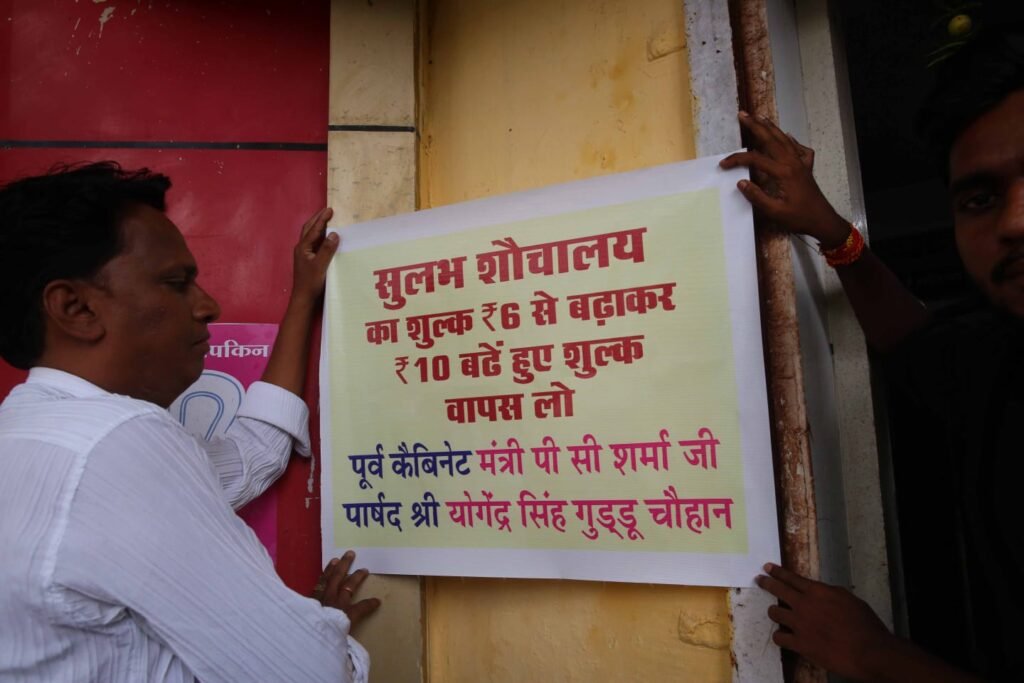 सुलभ शौचालय
का शुल्क ₹6 से बढ़ाकर
₹10 बढें हुए शुल्क
वापस लो
पूर्व कैबिनेट मंत्री पी सी शर्मा जी
पार्षद श्री योगेंद्र सिंह गुड्डू चौहान